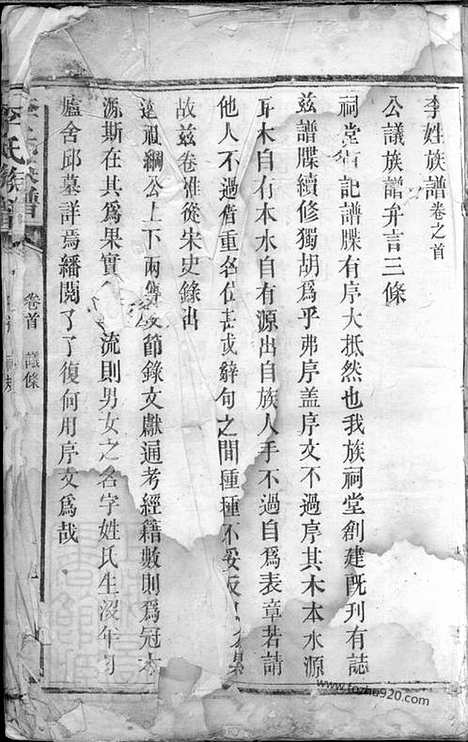 李姓族譜卷之首
公議族譜弁言三條
祠堂有記譜牒有序大抵然也我族祠堂創建既刊有誌
茲譜牒續修獨胡爲乎弗序盖序文不過序其木本水源
耳木自有本水自有源出自族人手不過自爲表章若請
他人不過舊重名位甚或辭句之間種種不妥反
故茲卷雅從宋史錄出
遠祖綱公上下兩傳及節錄文獻通考經籍數則爲冠本
源斯在其爲果實 流則男女之名字姓氏生沒年月
廬舍邱墓詳焉繙閱了了復何用序文爲哉
李氏族譜
卷首 議條
www.fozhu920.com